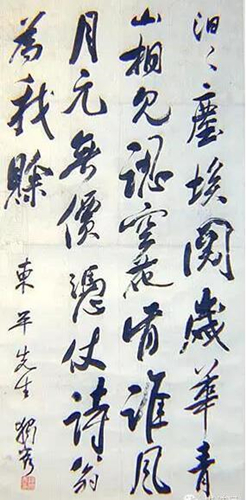 汩〻塵埃閱歲華青
山相見認空花有誰風
月元無價憑仗詩翁
為我賒
東平先生 獨秀